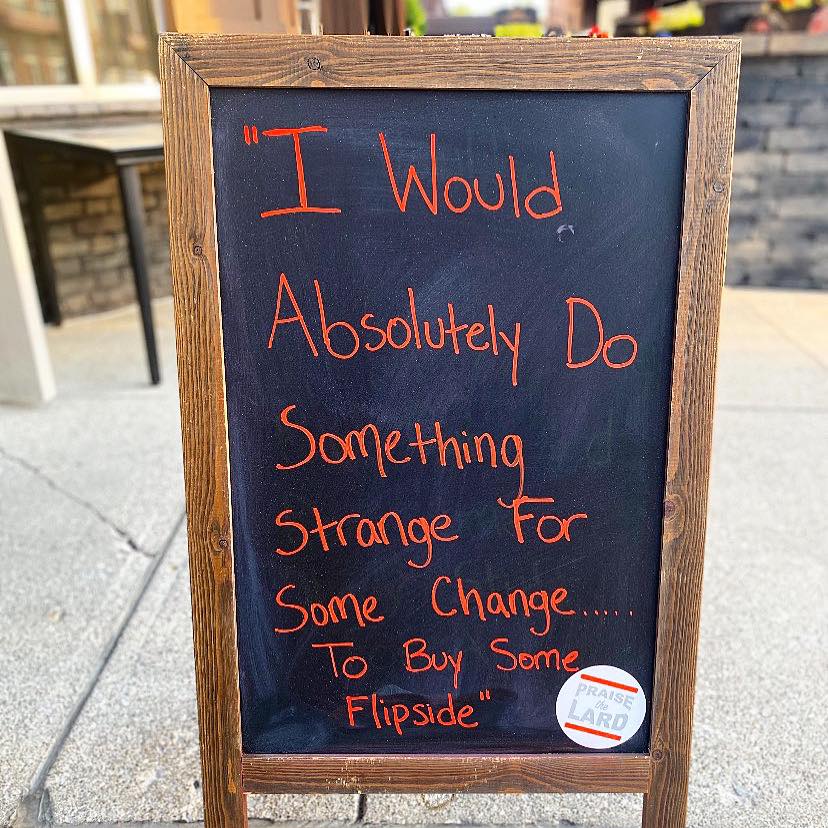 "I Would
Absolutely Do
Something
Strange For
Some Change.....
To Buy Some
Flipside"
PRAISE
the
LARD